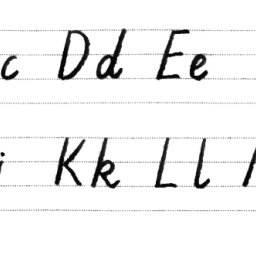 c Dd Ee
i Kk Ll